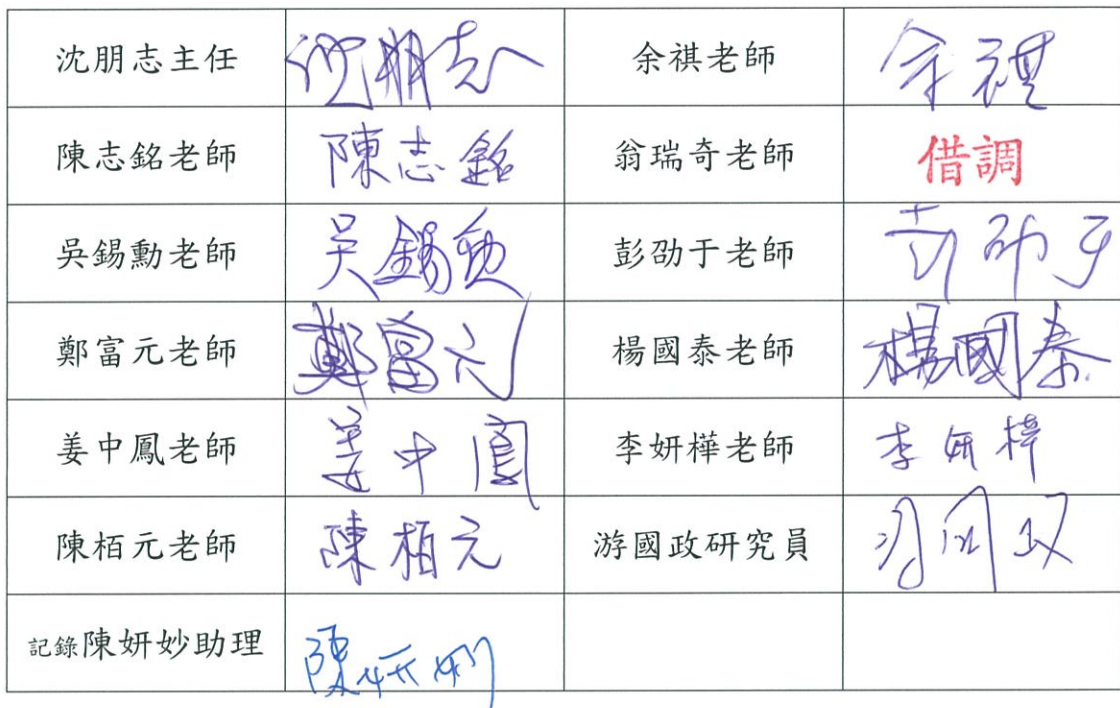 沈朋志主任 沈朋志 余祺老師 余祺
陳志銘老師 陳志銘 翁瑞奇老師 借調
吳錫勳老師 吳錫勳 彭劭于老師 彭劭于
鄭富元老師 鄭富元 楊國泰老師 楊國泰
姜中鳳老師 姜中鳳 李妍樺老師 李妍樺
陳栢元老師 陳栢元 游國政研究員 游國政
記錄陳妍妙助理 陳妍妙